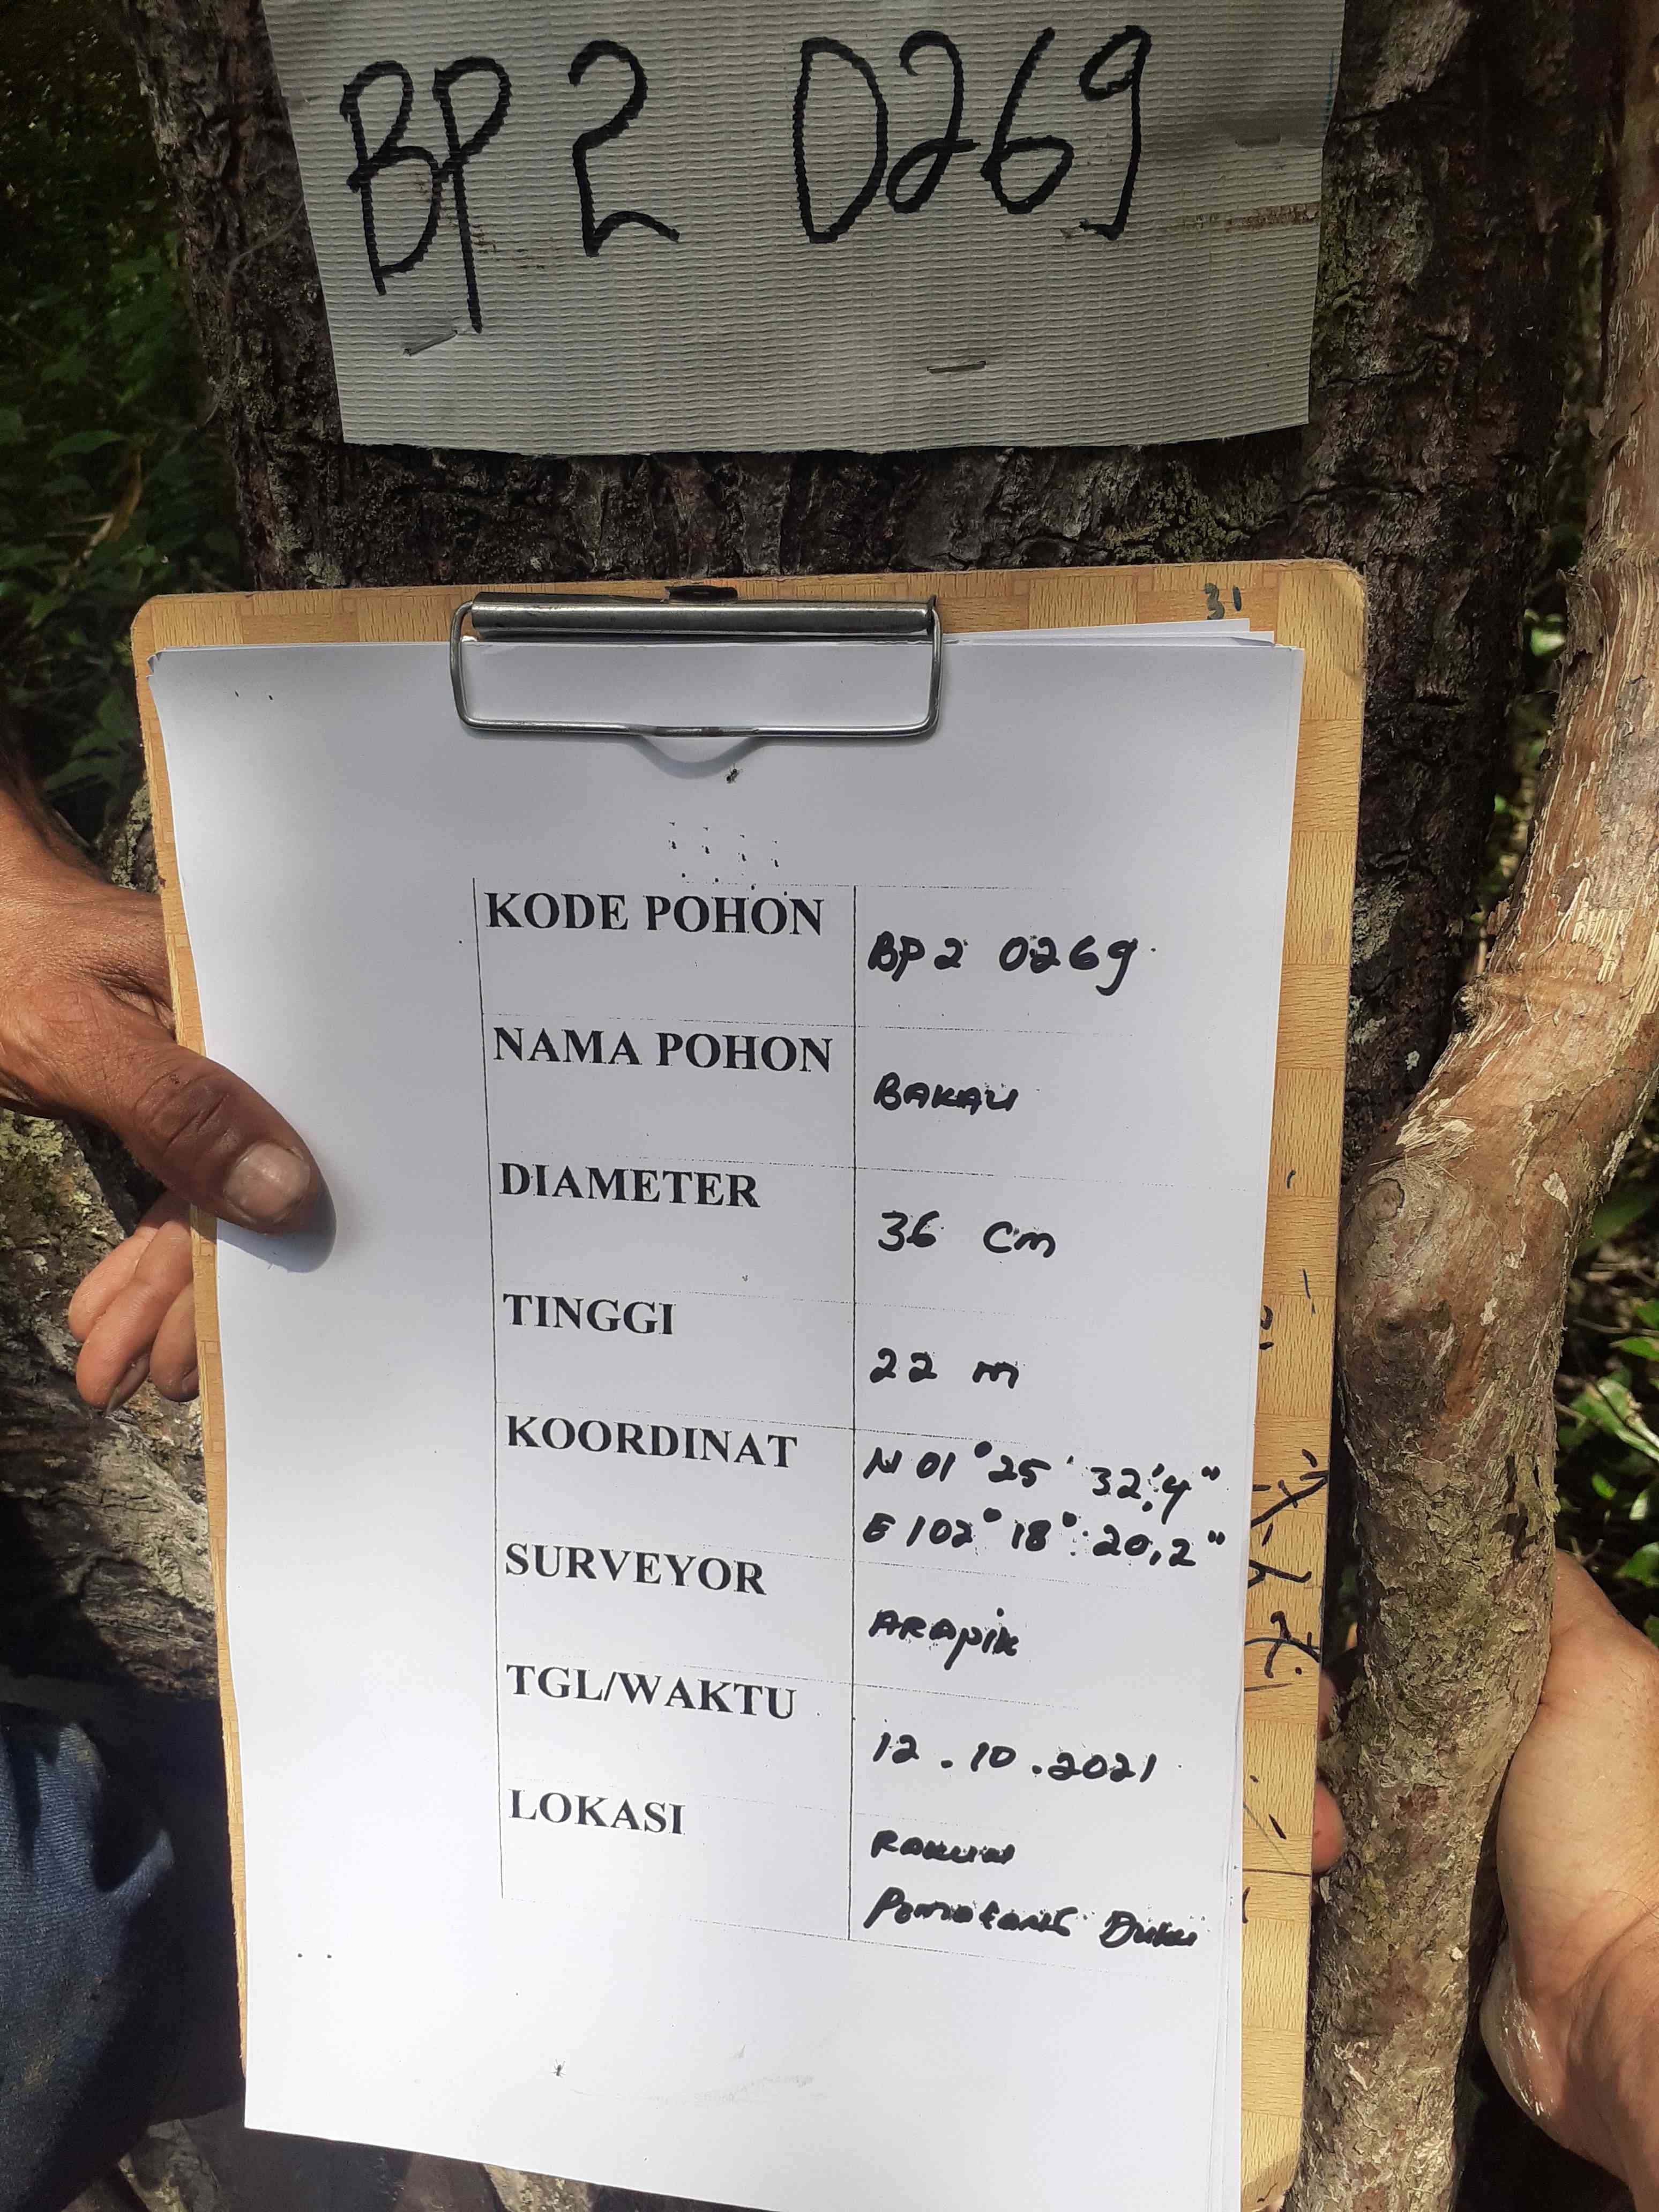 BP 2 0269
31
KODE POHON BP 2 0269
NAMA POHON BAKAU
DIAMETER 36 Cm
TINGGI 22 m
KOORDINAT N 01° 25' 32,4"
E 102° 18° 20,2"
SURVEYOR ARApik
TGL/WAKTU 12.10.2021
LOKASI
Duku